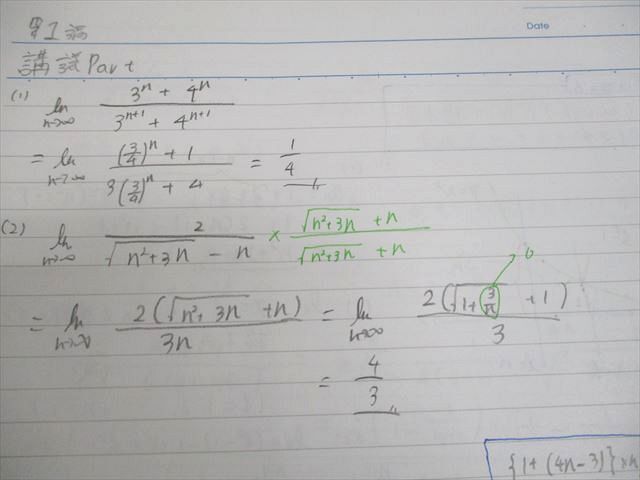 Date
第1講
講義Part
(1) lim n→∞ (3^n + 4^n)/(3^{n+1} + 4^{n+1})
= lim n→∞ ((3/4)^n + 1)/(3(3/4)^n + 4) = 1/4
(2) lim n→∞ 2/(√(n²+3n) - n) × (√(n²+3n) + n)/(√(n²+3n) + n)
0
= lim n→∞ 2(√(n²+3n) + n)/3n = lim n→∞ 2(√(1+3/n) + 1)/3
= 4/3
{1+(4n-3)}×n